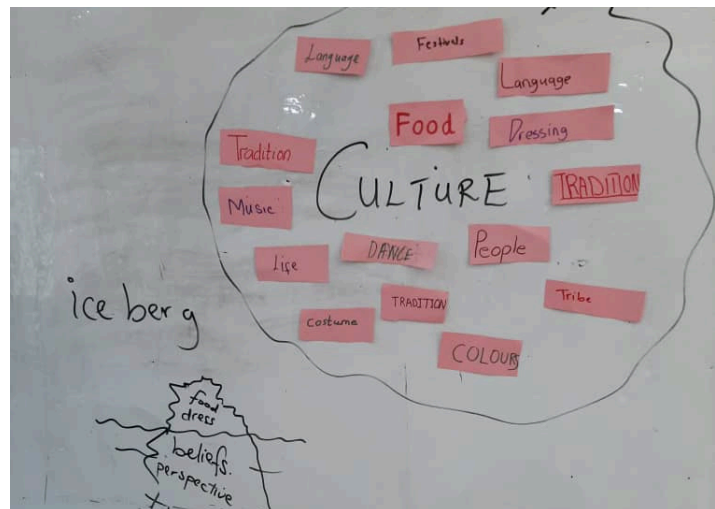 Language
Festivals
Language
Food
Dressing
Tradition
CULTURE
TRADITION
Music
DANCE
People
Life
Tribe
TRADITION
Costume
COLOURS
ice berg
food
dress
beliefs.
perspective